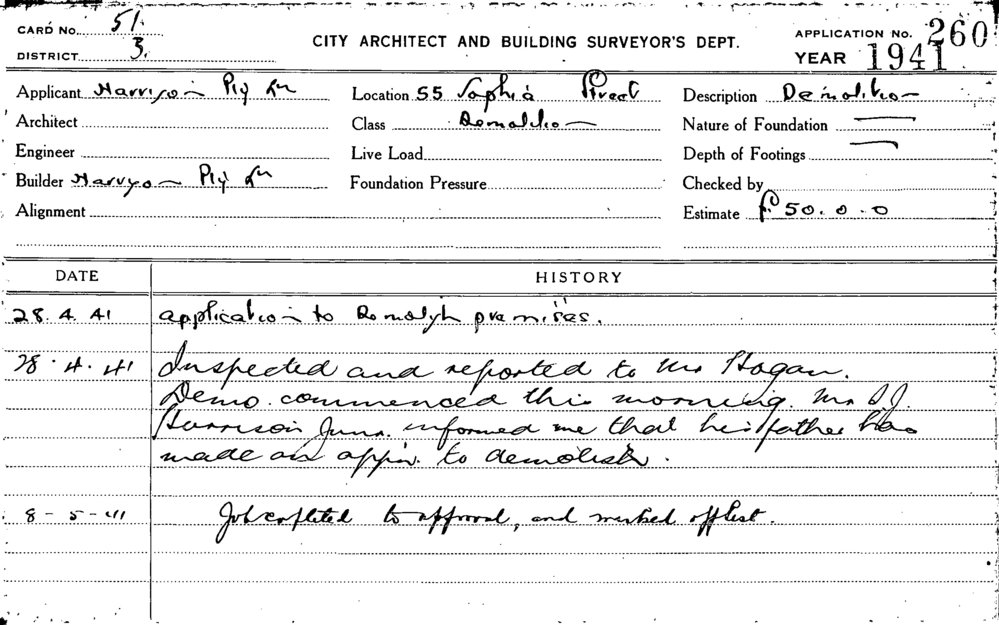 CARD No. 51.
DISTRICT 3.
CITY ARCHITECT AND BUILDING SURVEYOR'S DEPT.
APPLICATION No. 260
YEAR 1941
Applicant Harrison Pty Ltd
Location 55 Sophia Street
Description Demolition
Architect
Class Demolition
Nature of Foundation —
Engineer
Live Load
Depth of Footings —
Builder Harrison Pty Ltd
Foundation Pressure
Checked by
Alignment
Estimate £50.0.0
DATE HISTORY
28.4.41 application to Demolish premises.
28.4.41 Inspected and reported to Mr Hogan.
Demo. commenced this morning. Mr
Harrison Junr. informed me that his father has
made an appn. to demolish.
8-5-41 Job completed to approval, and marked off list.